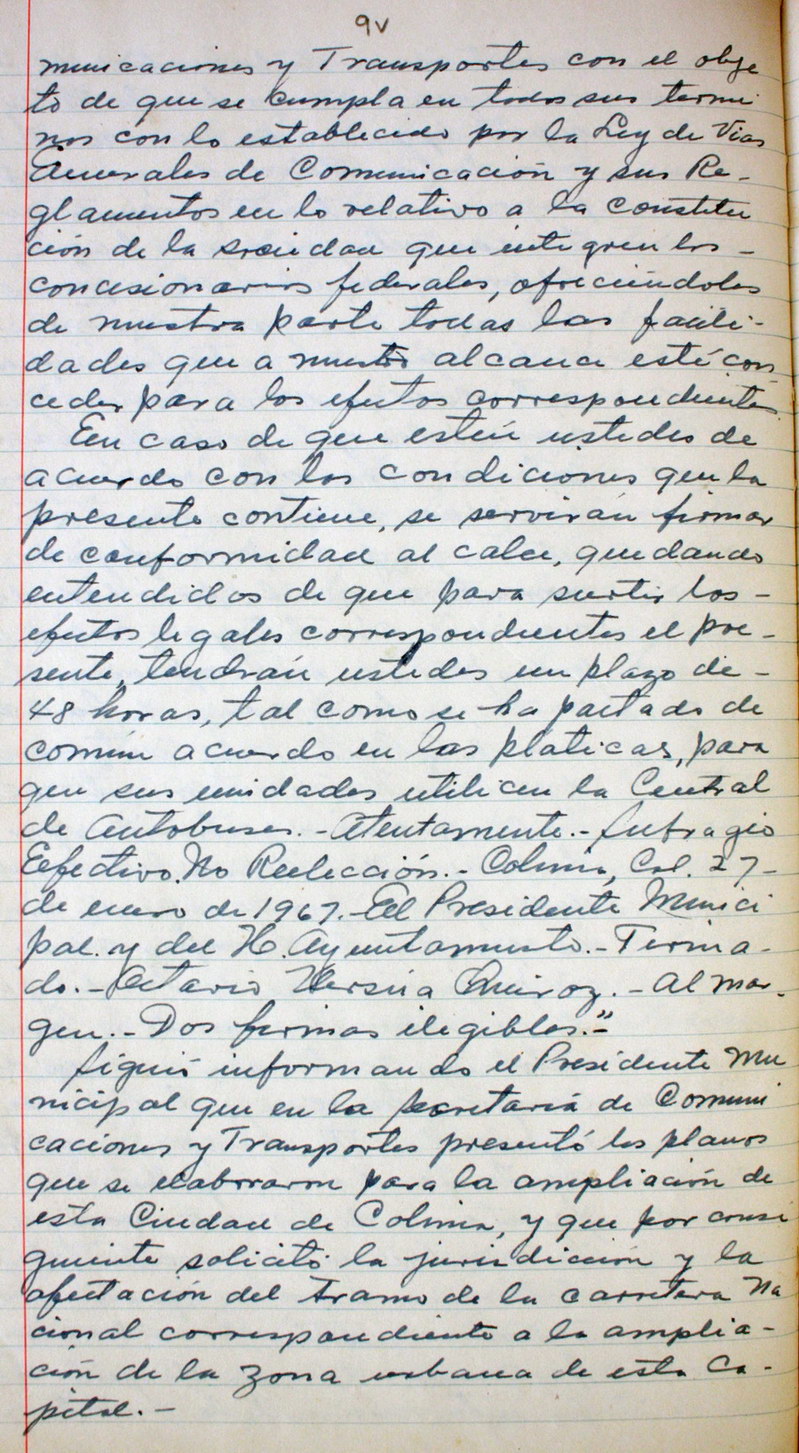 9v
municaciones y Transportes con el obje
to de que se cumpla en todos sus termi
nos con lo establecido por la Ley de Vias
Generales de Comunicación y sus Re-
glamentos en lo relativo a la constitu
ción de la sociedad que integren los -
concesionarios federales, ofreciéndoles
de nuestra parte todas las facili-
dades que a nuestro alcance esté con
ceder para los efectos correspondientes.
En caso de que estén ustedes de
acuerdo con las condiciones que la
presente contiene, se servirán firmar
de conformidad al calce, quedando
entendidos de que para surtir los -
efectos legales correspondientes el pre-
sente, tendrán ustedes un plazo de -
48 horas, tal como se ha pactado de
común acuerdo en las platicas, para
que sus unidades utilicen la Central
de Autobuses.- Atentamente.- Sufragio
Efectivo. No Reelección.- Colima, Col. 27-
de enero de 1967.- El Presidente Munici
pal. y del H. Ayuntamiento.- Firma-
do.- Octavio Ursúa Quiroz.- Al mar-
gen.- Dos firmas ilegibles.-"
Siguió informando el Presidente Mu
nicipal que en la Secretaría de Comuni
caciones y Transportes presentó los planos
que se elaboraron para la ampliación de
esta Ciudad de Colima, y que por consi
guiente solicitó la jurisdicción y la
afectación del tramo de la carretera Na
cional correspondiente a la amplia-
ción de la zona urbana de esta Ca-
pital.-